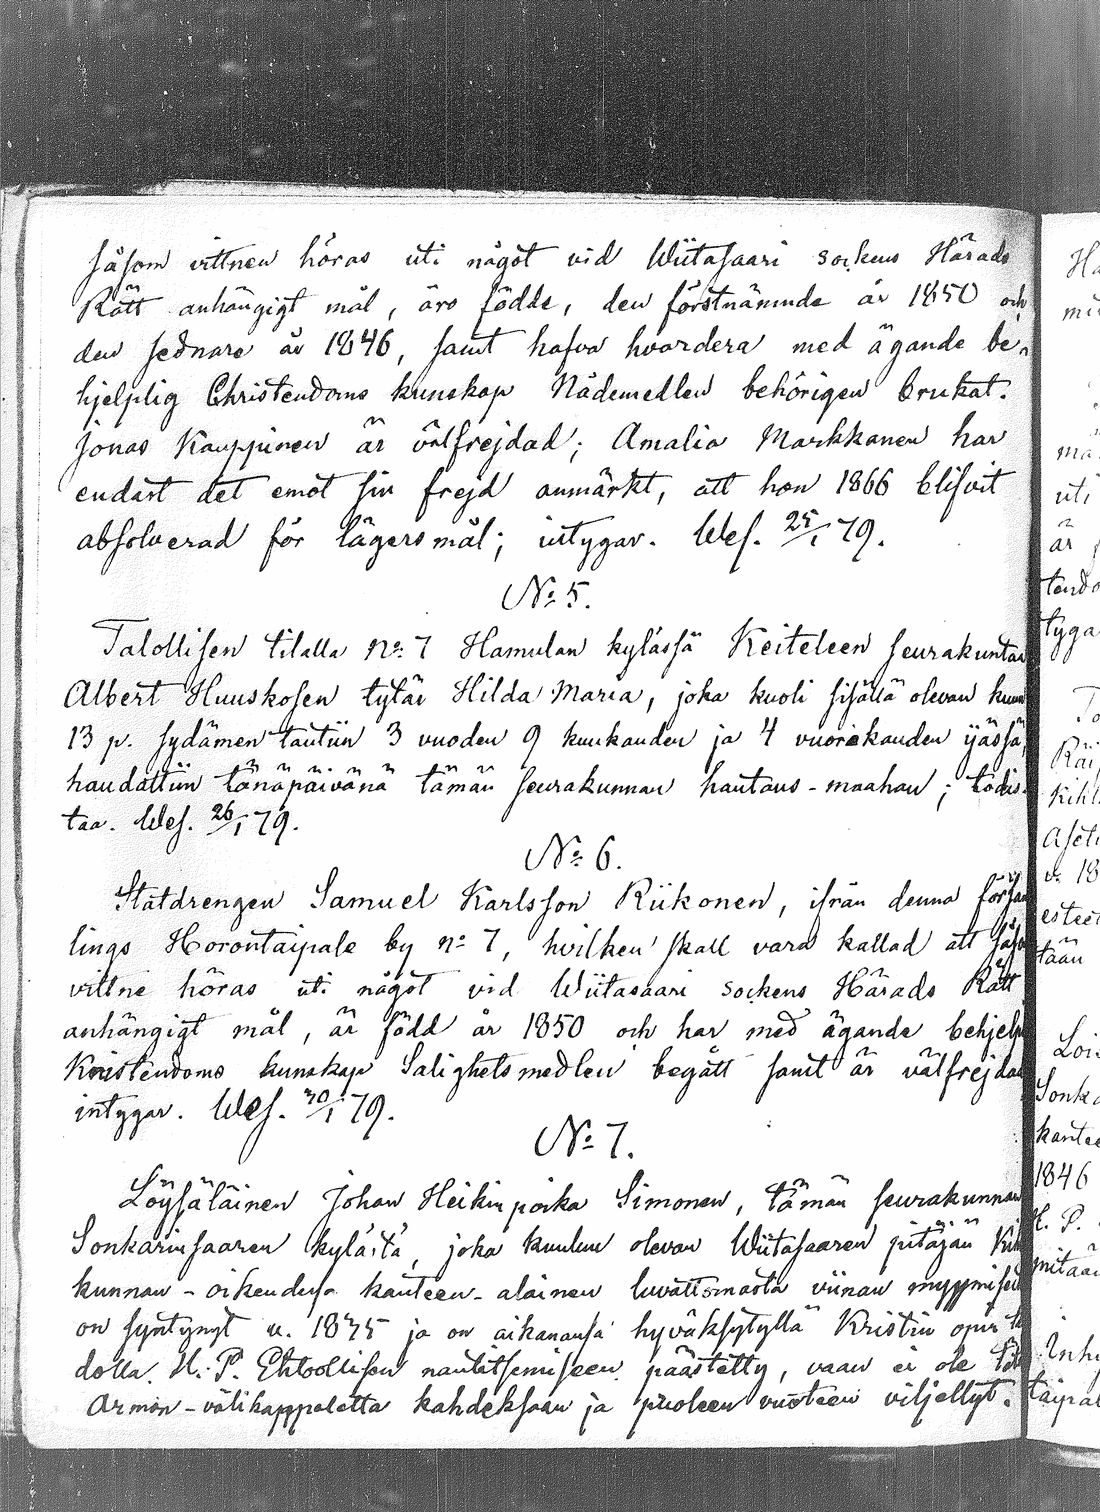 såsom vittnen höras uti något vid Wiitasaari sockens Härads
Rätt anhängigt mål, äro födde, den förstnämnde år 1850 och
den sednare år 1846, samt hafva hvardera med ägande be-
hjelplig Christendoms kunskap Nådemedlen behörigen brukat.
Jonas Kauppinen är välfrejdad; Amalia Markkanen har
endast det emot sin frejd anmärkt, att hon 1866 blifvit
absolverad för lägersmål; intygar. Wes. 25/1 79.
No 5.
Talollisen tilalla no 7 Hamulan kylässä Keiteleen seurakuntaa
Albert Huuskosen tytär Hilda Maria, joka kuoli sisällä olevan kuun
13 p. sydämen tautiin 3 vuoden 9 kuukauden ja 4 vuorokauden ijässä,
haudattiin tänäpäivänä tämän seurakunnan hautaus-maahan; todis-
taa. Wes. 26/1 79.
No 6.
Statdrengen Samuel Karlsson Riikonen, ifrån denna försam
lings Horontaipale by no 7, hvilken skall vara kallad att såso
vittne höras uti något vid Wiitasaari sockens Härads Rätt
anhängigt mål, är född år 1850 och har med ägande behjelp
Kristendoms kunskap Salighetsmedlen begått samt är välfrejdad
intygar. Wes. 30/1 79.
No 7.
Löysäläinen Johan Heikin poika Simonen, tämän seurakunnan
Sonkarinsaaren kylästä, joka kuuluu olevan Wiitasaaren pitäjän Kih
kunnan-oikeudessa kanteen-alainen luvattomasta viinan myymises
on syntynyt v. 1845 ja on aikanansa hyväksytyllä Kristin opin
dolla H. P. Ehtoollisen nautitsemiseen päästetty, vaan ei ole
Armon-välikappaletta kahdeksaan ja puoleen vuoteen viljellyt.